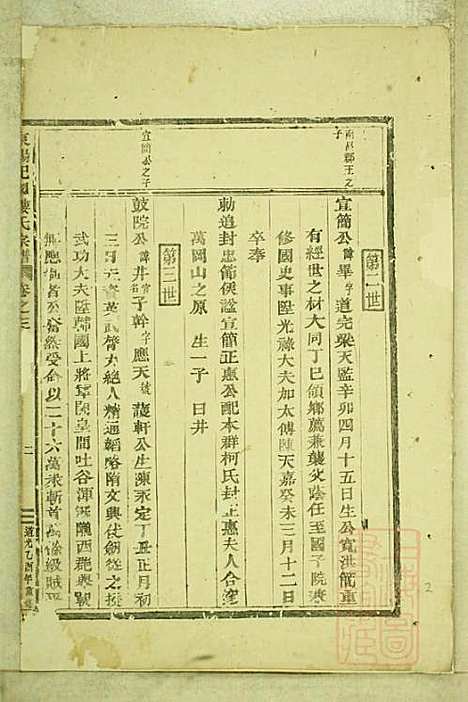 南昌郡王之子
第二世
宣簡公諱畢字道完梁天監辛卯四月十五日生公寬洪簡重
有經世之材大同丁巳領鄉薦兼襲父蔭任至國子院兼
修國史事陞光祿大夫加太傅陳天嘉癸未三月十二日
卒奉
勅追封忠節侯諡宣節正惠公配本群柯氏封正惠夫人合窆
萬岡山之原 生一子 曰井
第三世
宜簡公之子
鼓院公諱井字子幹字應天號謨軒公生陳永定丁丑正月初
三日公英武膂力絕人精通韜略隋文興仗劍從之授
武功大夫陞韓國上將軍陳皇間吐谷渾冦隴西郡興朝
無應者公奮然受命以二十六萬衆斬首萬餘級賊平
東陽 婁氏家譜 卷之
道光乙酉年重修